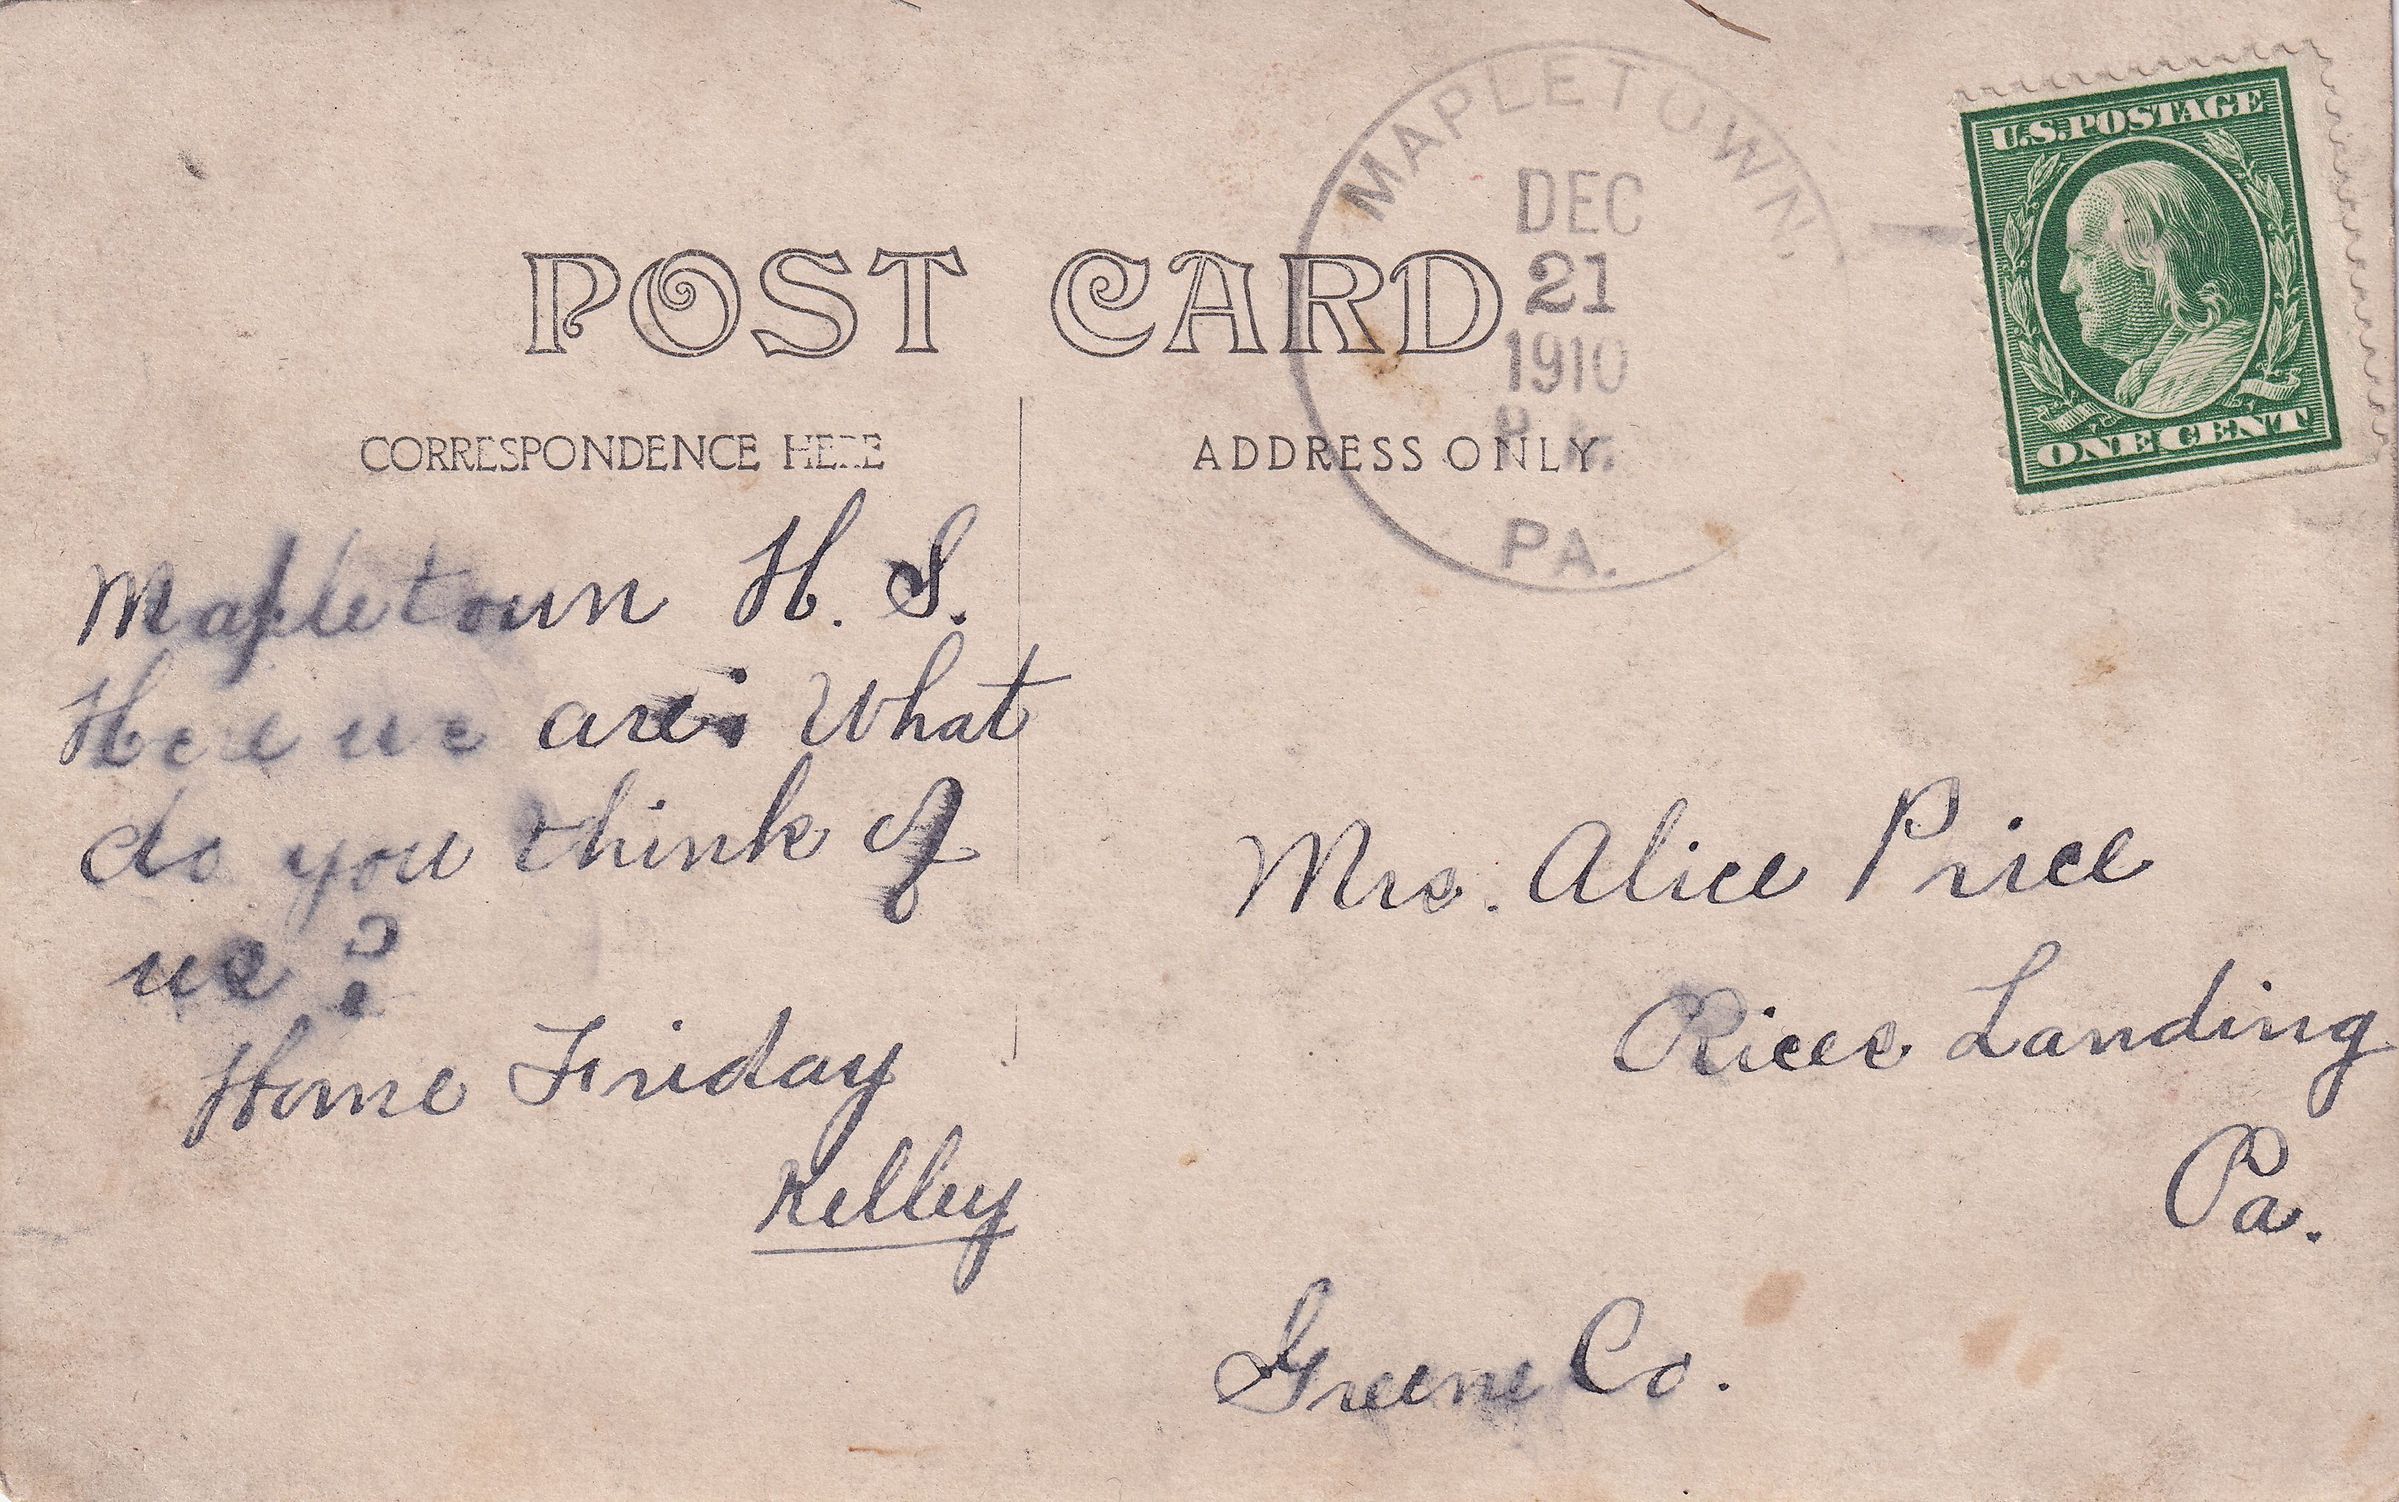 MAPLETOWN,
DEC
21
1910
P.M.
PA.
U.S. POSTAGE
ONE CENT
POST CARD
CORRESPONDENCE HERE
ADDRESS ONLY
Mapletown H. S.
Here we are. What
do you think of
us?
Home Friday
Kelley
Mrs. Alice Price
Rices Landing
Pa.
Greene Co.